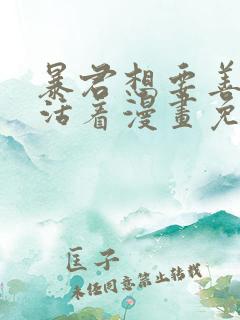 暴君想要善
活着漫畫免
匡子
未经同意禁止转载